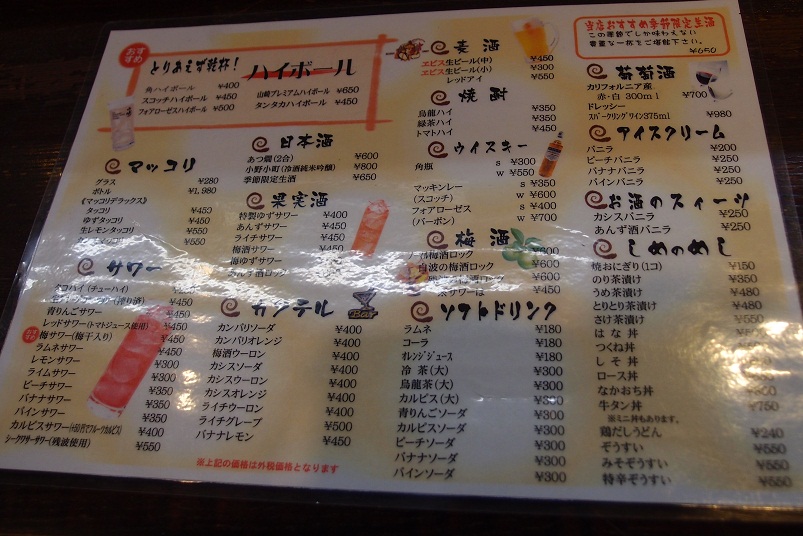 おすすめ
とりあえず乾杯！
ハイボール
角ハイボール ¥400
スコッチハイボール ¥450
フォアローゼスハイボール ¥500
山崎プレミアムハイボール ¥650
タンタカハイボール ¥450
マッコリ
グラス ¥280
ボトル ¥1,980
《マッコリデラックス》
タッコリ ¥450
ゆずタッコリ ¥450
生レモンタッコリ ¥450
¥450
サワー
タコハイ(チューハイ)
青りんごサワー
レッドサワー(トマトジュース使用) ¥450
おすすめ
梅サワー(梅干入り) ¥450
ラムネサワー
レモンサワー
ライムサワー
ピーチサワー
バナナサワー ¥350
パインサワー ¥350
カルピスサワー(+50円でフルーツカルピス) ¥400
シークワサーサワー(残波使用) ¥550
日本酒
あつ燗(2合) ¥600
小野小町(冷酒純米吟醸) ¥800
季節限定生酒 ¥650
果実酒
特製ゆずサワー ¥400
あんずサワー ¥450
ライチサワー ¥450
梅酒サワー ¥450
梅ゆずサワー
あんず酒ロック
カクテル
Bar
カンパリソーダ ¥400
カンパリオレンジ ¥400
梅酒ウーロン ¥400
カシスソーダ ¥400
カシスウーロン ¥400
カシスオレンジ ¥400
ライチウーロン ¥400
ライチグレープ ¥500
バナナレモン ¥450
※上記の価格は外税価格となります
麦酒
ヱビス生ビール(中) ¥450
ヱビス生ビール(小) ¥300
レッドアイ ¥550
焼酎
烏龍ハイ ¥350
緑茶ハイ ¥350
トマトハイ ¥450
ウイスキー
角瓶 s ¥300
w ¥550
マッキンレー s ¥350
(スコッチ) w ¥600
フォアローゼス s ¥400
(バーボン) w ¥700
梅酒
梅酒ロック ¥600
白波の梅酒ロック
ソフトドリンク
ラムネ ¥180
コーラ ¥180
オレンジジュース ¥180
冷茶(大) ¥300
烏龍茶(大) ¥300
カルピス(大) ¥300
青りんごソーダ ¥300
カルピスソーダ ¥300
ピーチソーダ ¥300
バナナソーダ ¥300
パインソーダ ¥300
当店おすすめ季節限定生酒
この季節でしか味わえない
貴重な一杯をご堪能下さい。
¥650
葡萄酒
カリフォルニア産
赤・白 300ml ¥700
ドレッシー
スパークリングワイン375ml ¥980
アイスクリーム
バニラ ¥200
ピーチバニラ ¥250
バナナバニラ ¥250
パインバニラ ¥250
お酒のスイーツ
カシスバニラ ¥250
あんず酒バニラ ¥250
しめのめし
焼おにぎり(1コ) ¥150
のり茶漬け ¥350
うめ茶漬け ¥350
とりとり茶漬け ¥350
さけ茶漬け
はな丼
つくね丼
しそ丼
ロース丼
なかおち丼
牛タン丼 ¥750
※ミニ丼もあります。
鶏だしうどん ¥240
ぞうすい ¥550
みそぞうすい ¥550
特辛ぞうすい ¥550